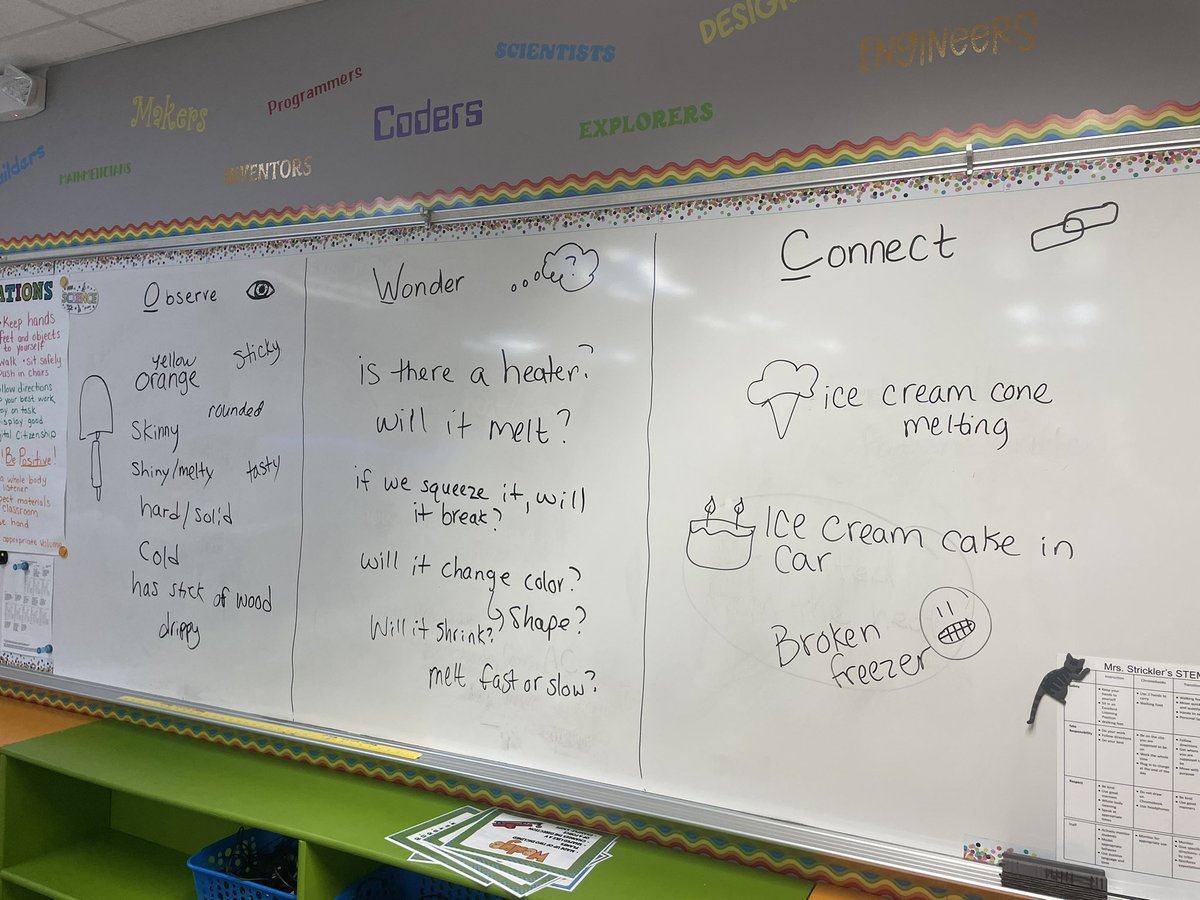 DESIGN
ENGINEERS
SCIENTISTS
Programmers
Makers
Coders
EXPLORERS
INVENTORS
MATHMETICIANS
Observe
yellow
sticky
orange
rounded
skinny
shiny/melty
tasty
hard/solid
Cold
has stick of wood
drippy
Wonder
?
is there a heater?
will it melt?
if we squeeze it, will
it break?
will it change color?
Shape?
Will it shrink?
melt fast or slow?
Connect
ice cream cone
melting
Ice cream cake in
car
Broken
freezer
ATIONS
SCIENCE
Keep hands
feet and objects
to yourself
walk • sit safely
push in chairs
follow directions
your best work
on task
display good
Citizenship
Be Positive!
whole body
listener
materials
classroom
hand
appropriate volume
Mrs. Strickler's STEM
Instruction
Chromebooks
Take
Responsibility
Respect